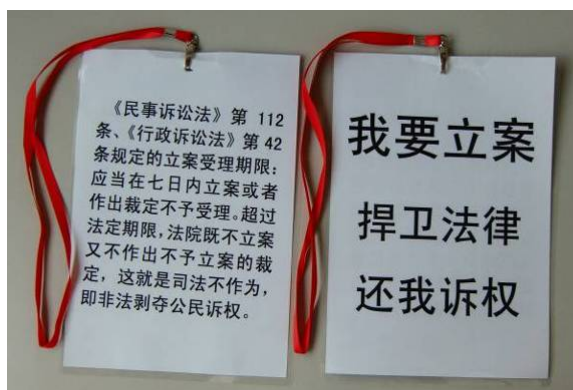 《民事诉讼法》第 112
条、《行政诉讼法》第 42
条规定的立案受理期限:
应当在七日内立案或者
作出裁定不予受理。超过
法定期限,法院既不立案
又不作出不予立案的裁
定，这就是司法不作为，
即非法剥夺公民诉权。
我要立案
捍卫法律
还我诉权